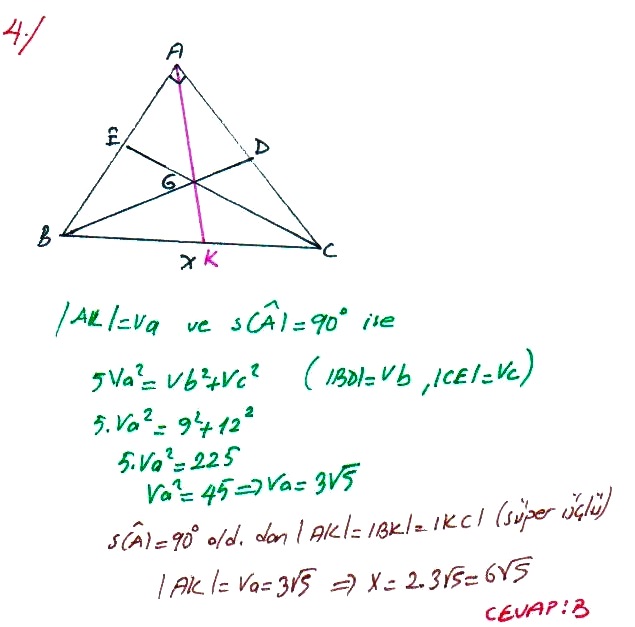 4./
A
E
D
G
B
C
x K
|AK|=Va ve s(Â)=90° ise
5Va²=Vb²+Vc² (|BD|=Vb, |CE|=Vc)
5.Va²=9²+12²
5.Va²=225
Va²=45⇒Va=3√5
s(Â)=90° old. dan |AK|=|BK|=|KC| (süper üçlü)
|AK|=Va=3√5 ⇒ x=2.3√5=6√5
CEVAP:B